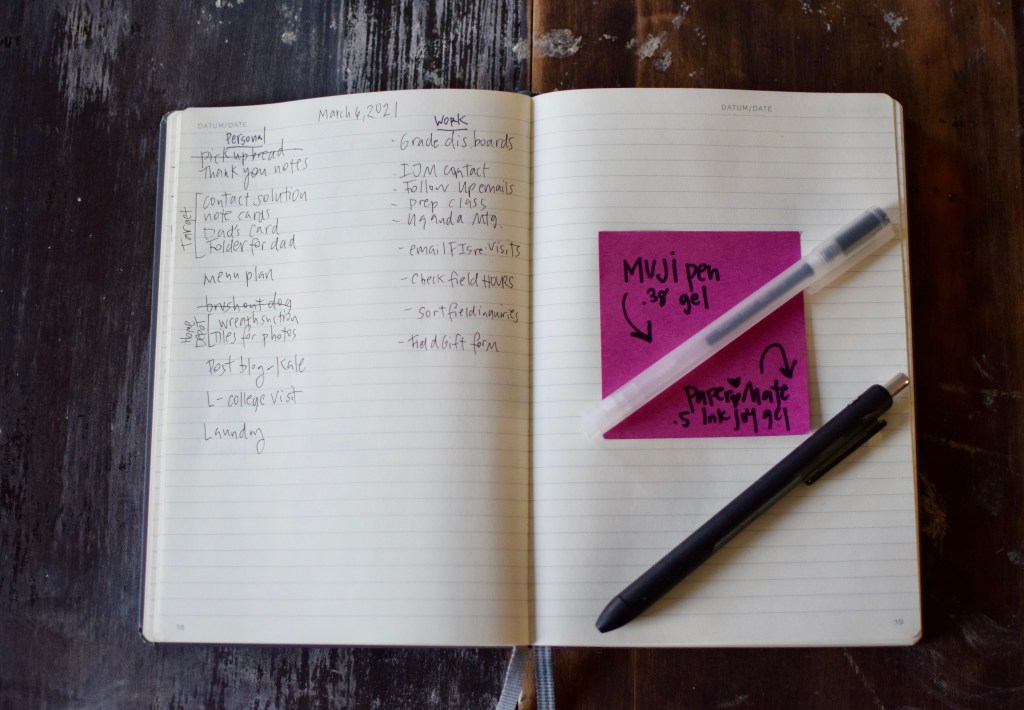 DATUM/DATE
March 6, 2021
Personal
pick up bread
Thank you notes
Target
contact solution
note cards
Dad's card
Folder for dad
menu plan
brush out dog
Home Depot
wreath suction
Tiles for photos
Post blog - Kale
L - college visit
Laundry
18
Work
- Grade dis. boards
- IJM contact
- Follow up emails
- Prep class
- Uganda Mtg.
- email FI s re. visits
- Check field HOURS
- Sort field inquiries
- Field Gift form
DATUM/DATE
MUJI pen
.38 gel
Paper Mate
.5 Ink Joy gel
19